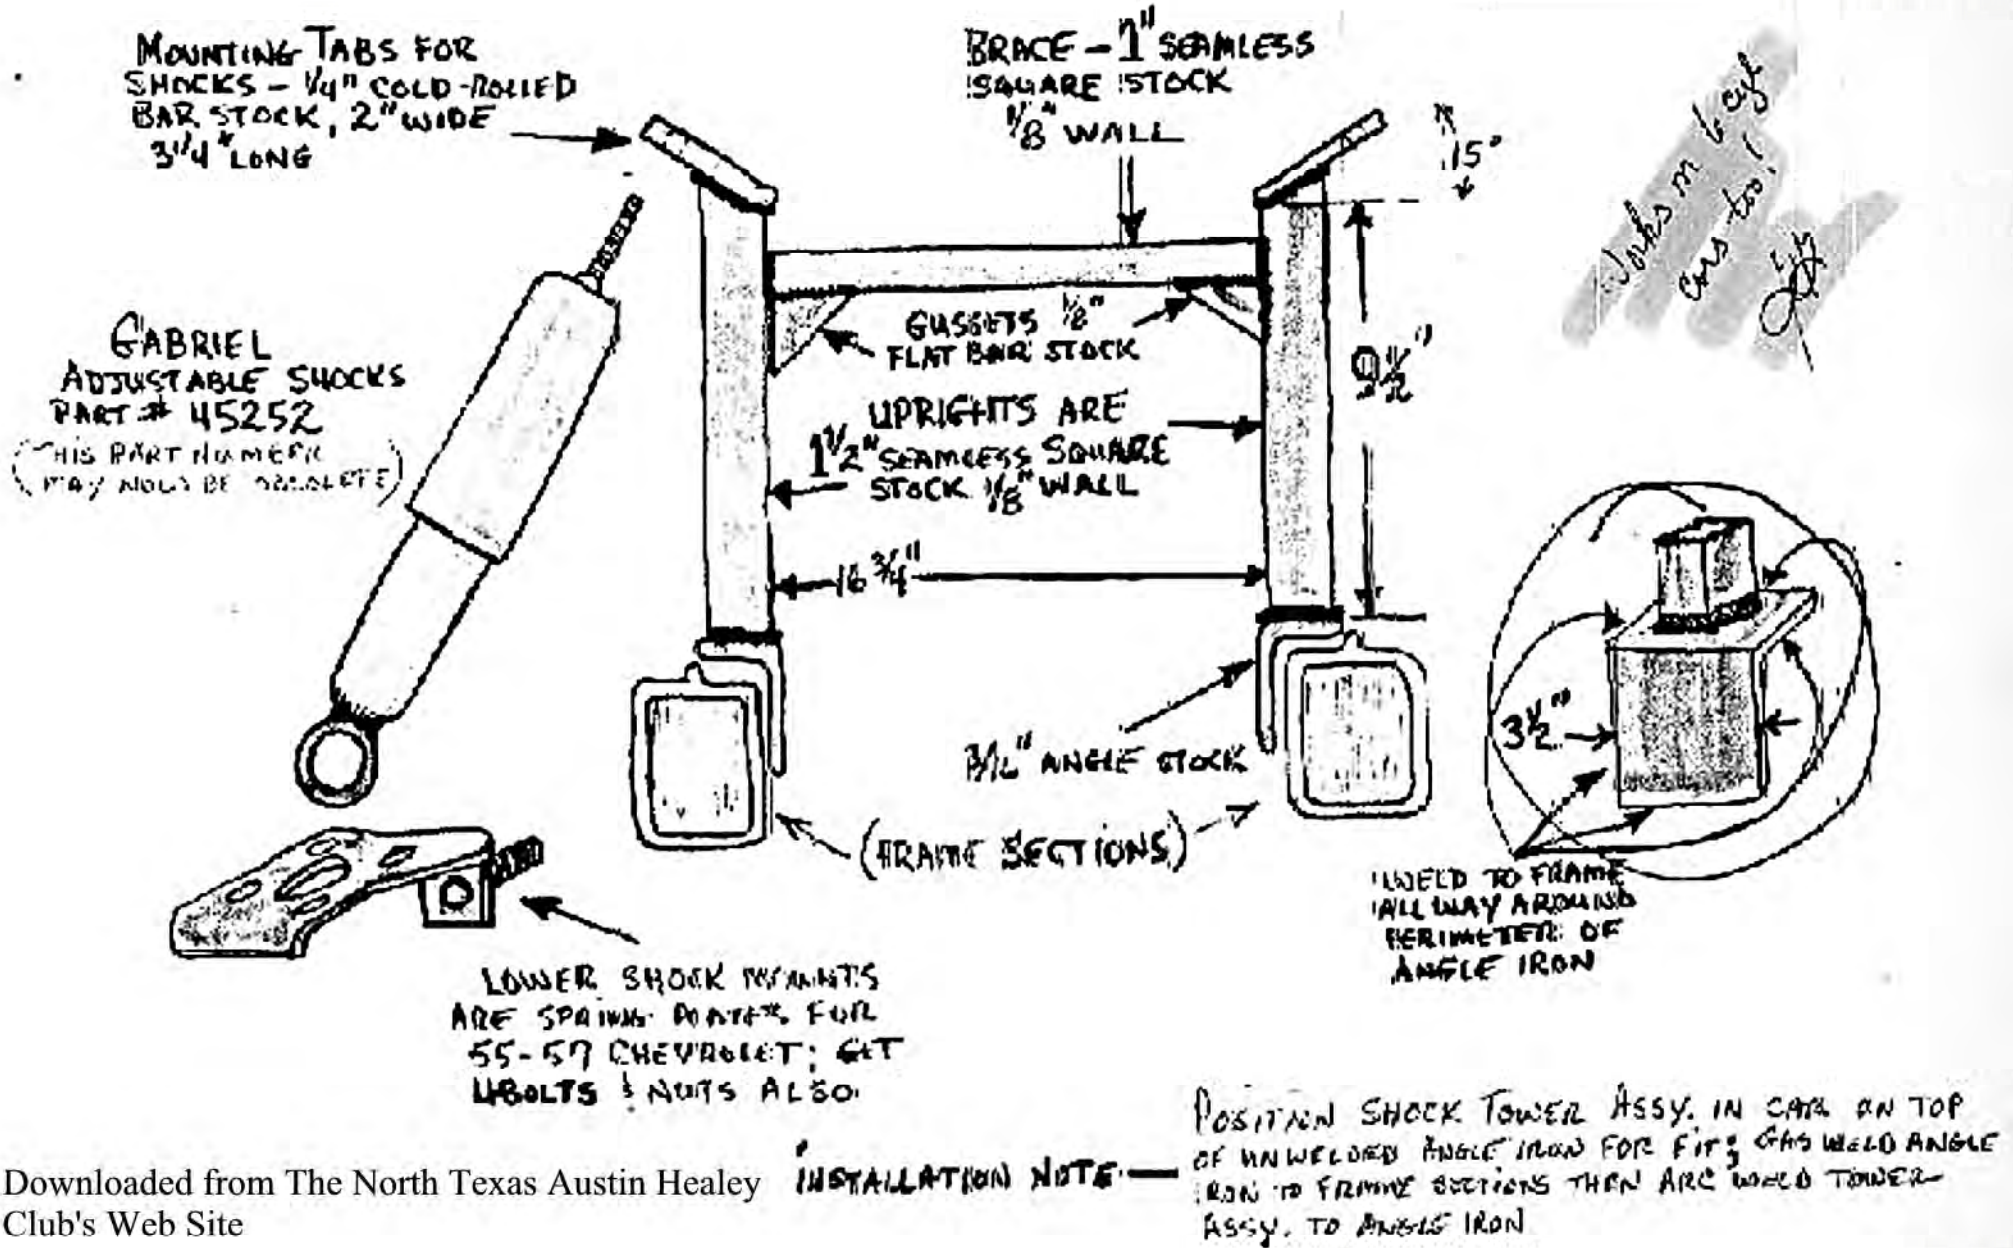 MOUNTING TABS FOR
SHOCKS - 1/4" COLD-ROLLED
BAR STOCK, 2" WIDE
3 1/4" LONG
BRACE - 1" SEAMLESS
SQUARE STOCK
1/8" WALL
15°
Works on 6 cyl
cars too!
GABRIEL
ADJUSTABLE SHOCKS
PART # 45252
(THIS PART NUMBER
MAY BE OBSOLETE)
GUSSETS 1/8"
FLAT BAR STOCK
9 1/2"
UPRIGHTS ARE
1 1/2" SEAMLESS SQUARE
STOCK 1/8" WALL
16 3/4"
3 1/2"
ANGLE STOCK
(FRAME SECTIONS)
WELD TO FRAME
ALL WAY AROUND
PERIMETER OF
ANGLE IRON
LOWER SHOCK MOUNTS
ARE SPRING PLATES FOR
55-57 CHEVROLET; GET
UBOLTS & NUTS ALSO.
INSTALLATION NOTE —
POSITION SHOCK TOWER ASSY. IN CAR ON TOP
OF UNWELDED ANGLE IRON FOR FIT; GAS WELD ANGLE
IRON TO FRAME SECTIONS THEN ARC WELD TOWER
ASSY. TO ANGLE IRON
Downloaded from The North Texas Austin Healey
Club's Web Site